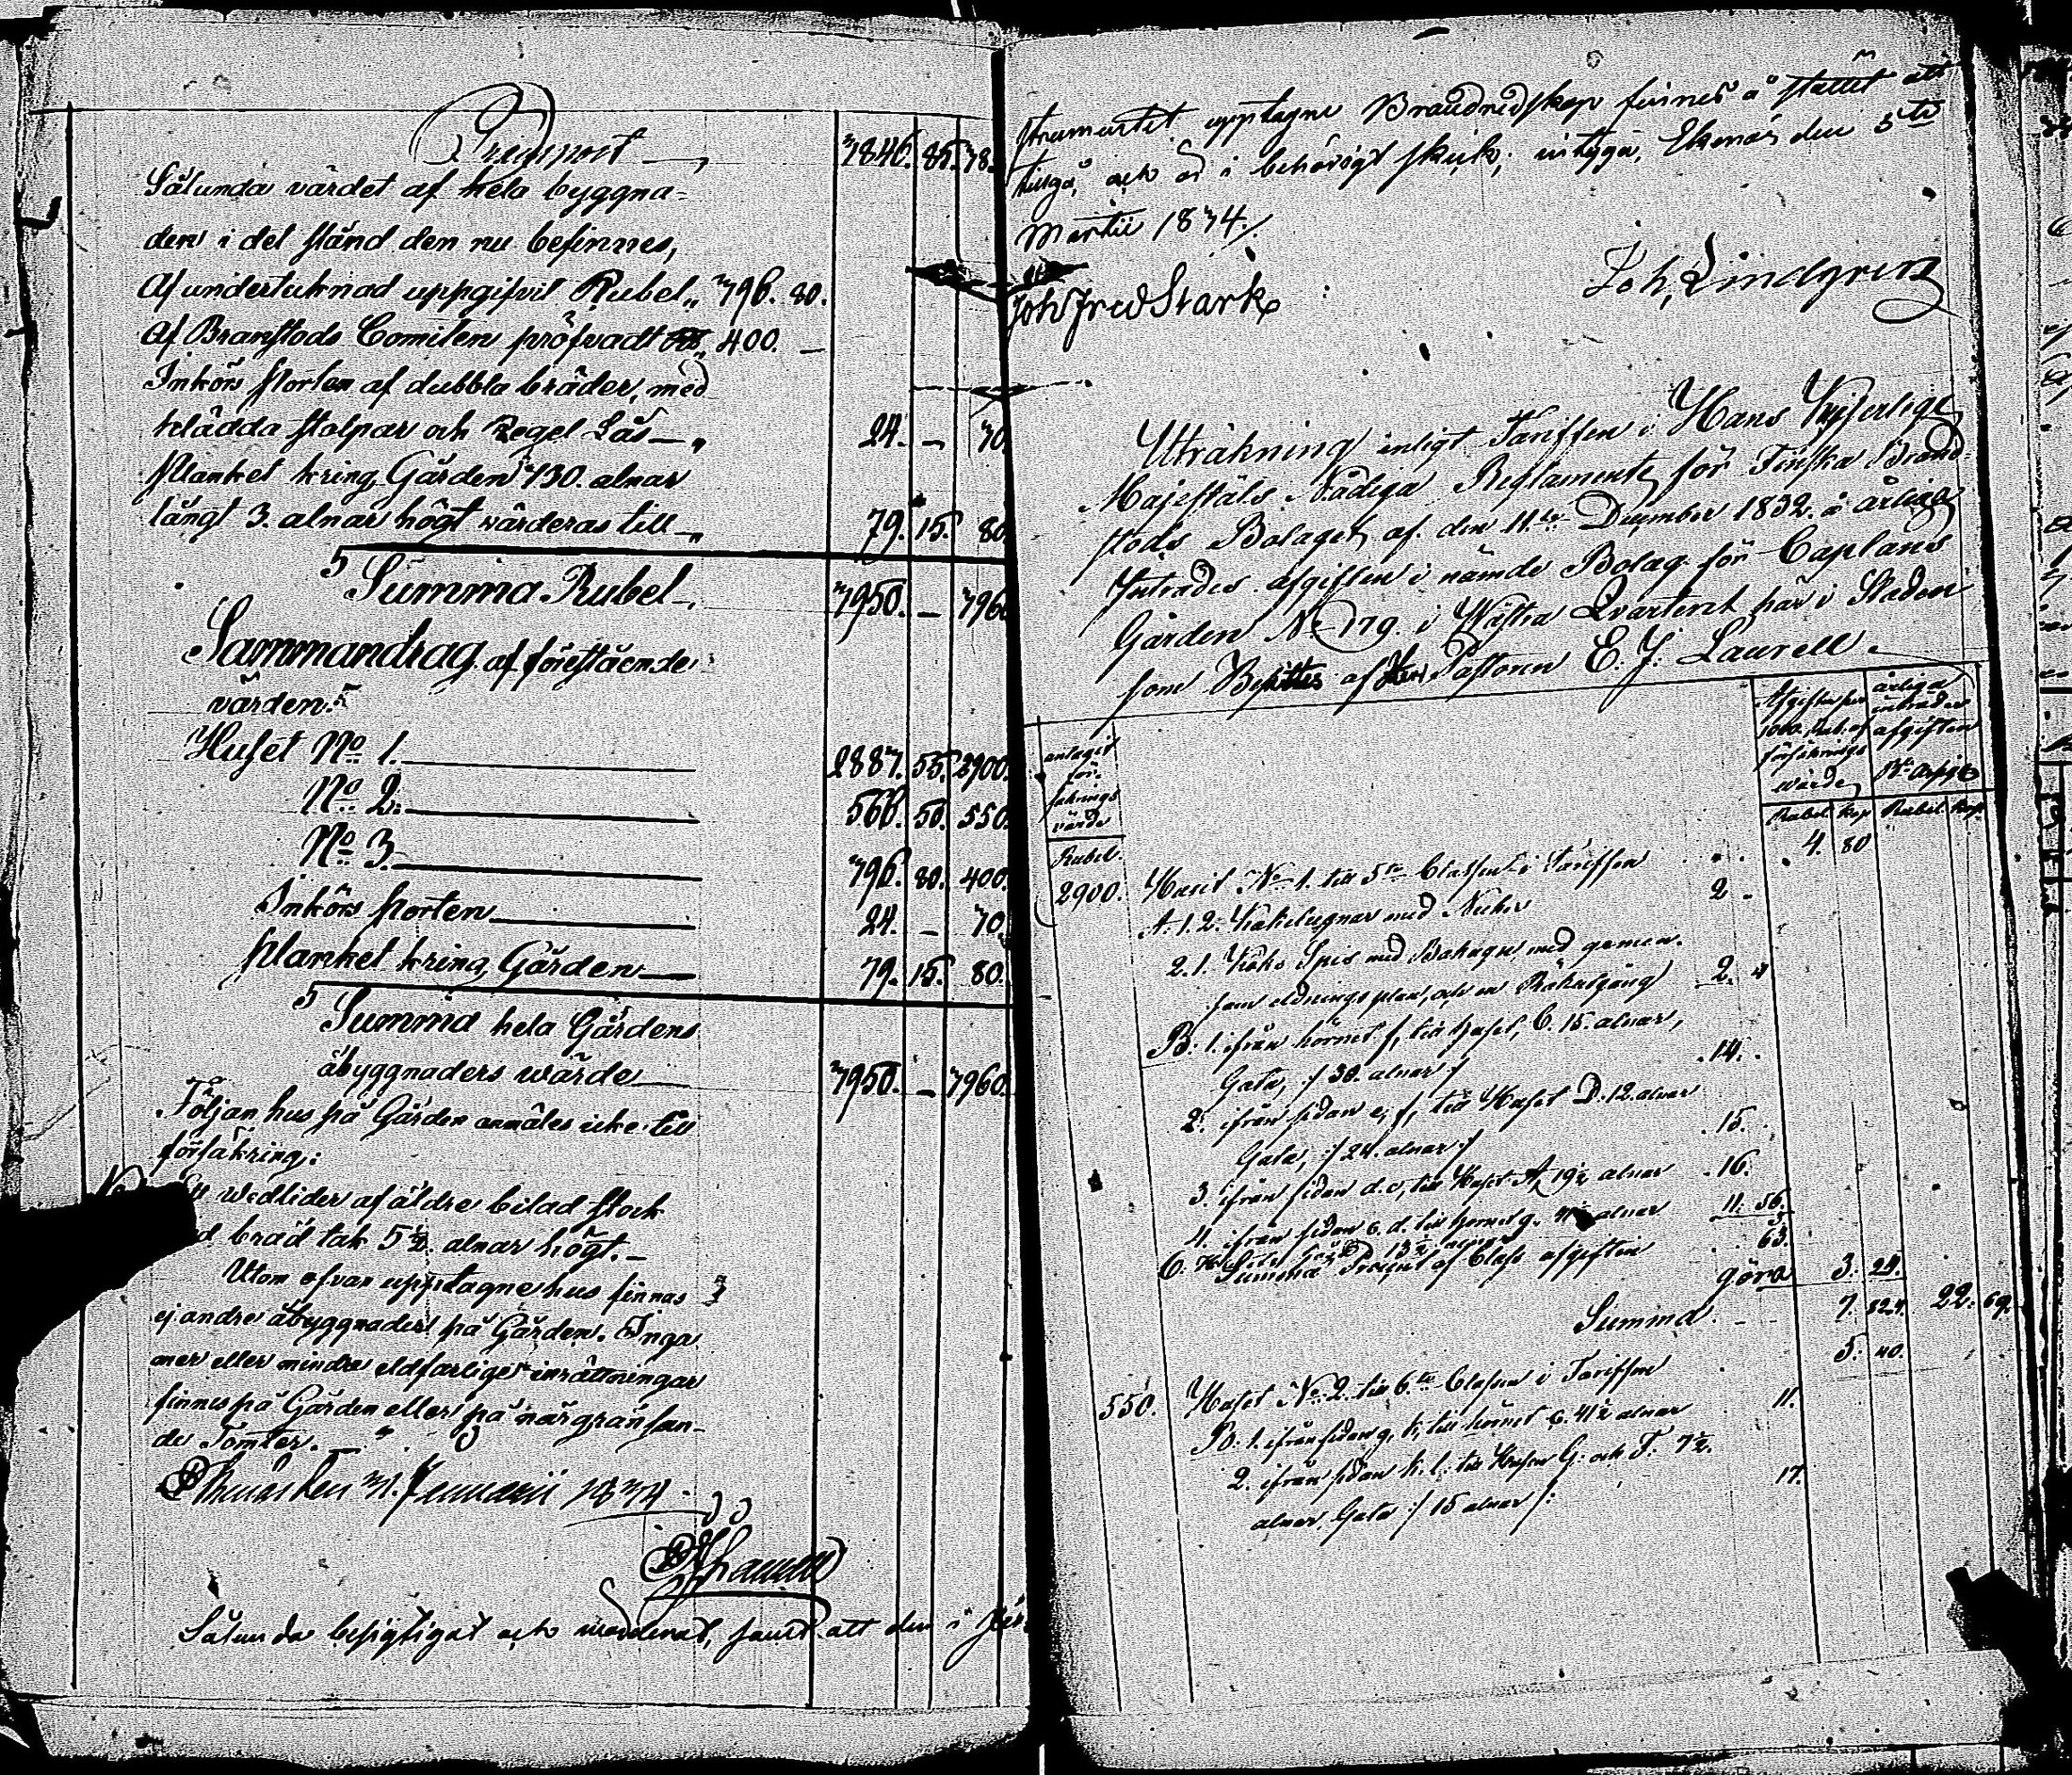 Transport 7846. 85. 78
Sålunda värdet af hela byggna-
den i det stånd den nu befinnes,
Af undertecknad uppgifvit Rubel „ 796. 80.
Af Branstods Comiten pröfvadt „ 400. —
Inkörs Porten af dubbla bräder, med
klädda stolpar och Regel Lås — „ 24. — 70
Planket kring Gården 130. alnar
långt 3. alnar högt värderas till — „ 79. 15. 80
Summa Rubel 7950. — 796
Sammandrag af förestående
värden.
Huset No 1. 2887. 55. 2900.
No 2. 566. 50. 550.
No 3. 796. 80. 400.
Inkörs Porten 24. — 70.
Planket kring Gården 79. 15. 80.
Summa hela Gårdens
åbyggnaders wärde 7950. — 7960.
Följan hus på Gården anmäles icke till
försäkring:
Ett Wedlider af äldre bilad stock
brädtak 5½ alnar högt. —
Utom ofvan upptagne hus finnas
ej andre åbyggnader på Gården. Inga
mer eller mindre eldfarlige inrättningar
finnes på Gården eller på närgränsan-
de Tomter. —
den 31. Januarii 1834
E J Laurell
Sålunda besigtigat och värderat, samt att den i
strumentet upptagne Brandredskap finnes å stället att
tillgå, och är i behörigt skick, intyga, Ekenäs den 5te
Martii 1834.
Joh Fred Stark Joh, Lindgren
Uträkning enligt Tariffen i Hans Kejserlige
Majestäts Nådiga Reglamente för Finska Brand-
stods Bolaget af den 11te December 1832. å årliga
Inträdes afgiften i nämde Bolag för Caplans
Gården No 179. i Wästra Qvarteret här i Staden
som Besittes af Herr Pastoren E. J. Laurell.
antagit
för-
säkrings
värde
Rubel.
Afgiften per
1000. Rub. af
försäkrings
wärde
Rubel Kop
årliga
inträdes
afgiften
Rubel. Kop.
2900. Huset No 1. till 5te Classen i Tariffen . . 4. 80
A. 1. 2. Kakelugnar med Nicher 2 -
2. 1. Köks Spis med Bakugn med gemen-
sam eldningsplan, och en Rökutgång 2. "
B: 1. ifrån hörnet f, till huset, C. 15. alnar,
Gata, :/ 30. alnar :/ . 14. .
2. ifrån sidan e, f, till Huset D. 12. alnar
Gata, :/ 24. alnar :/ . 15. .
3. ifrån sidan d. e, till Huset A, 19½ alnar . 16.
4. ifrån sidan c. d. till hörnet g. alnar 11. 56.
Summa Procent af Class afgiften 63.
göra 3. 24.
Summa. 7. 824. 22. 69.
550. Huset No 2. till 6te Classen i Tariffen . 5. 40.
B: 1. ifrån sidan g, h, till hörnet c. 4½ alnar 11.
2. ifrån sidan k. l. till Husen G. och F. 7½.
alnar, Gata :/ 15 alnar /: 17.